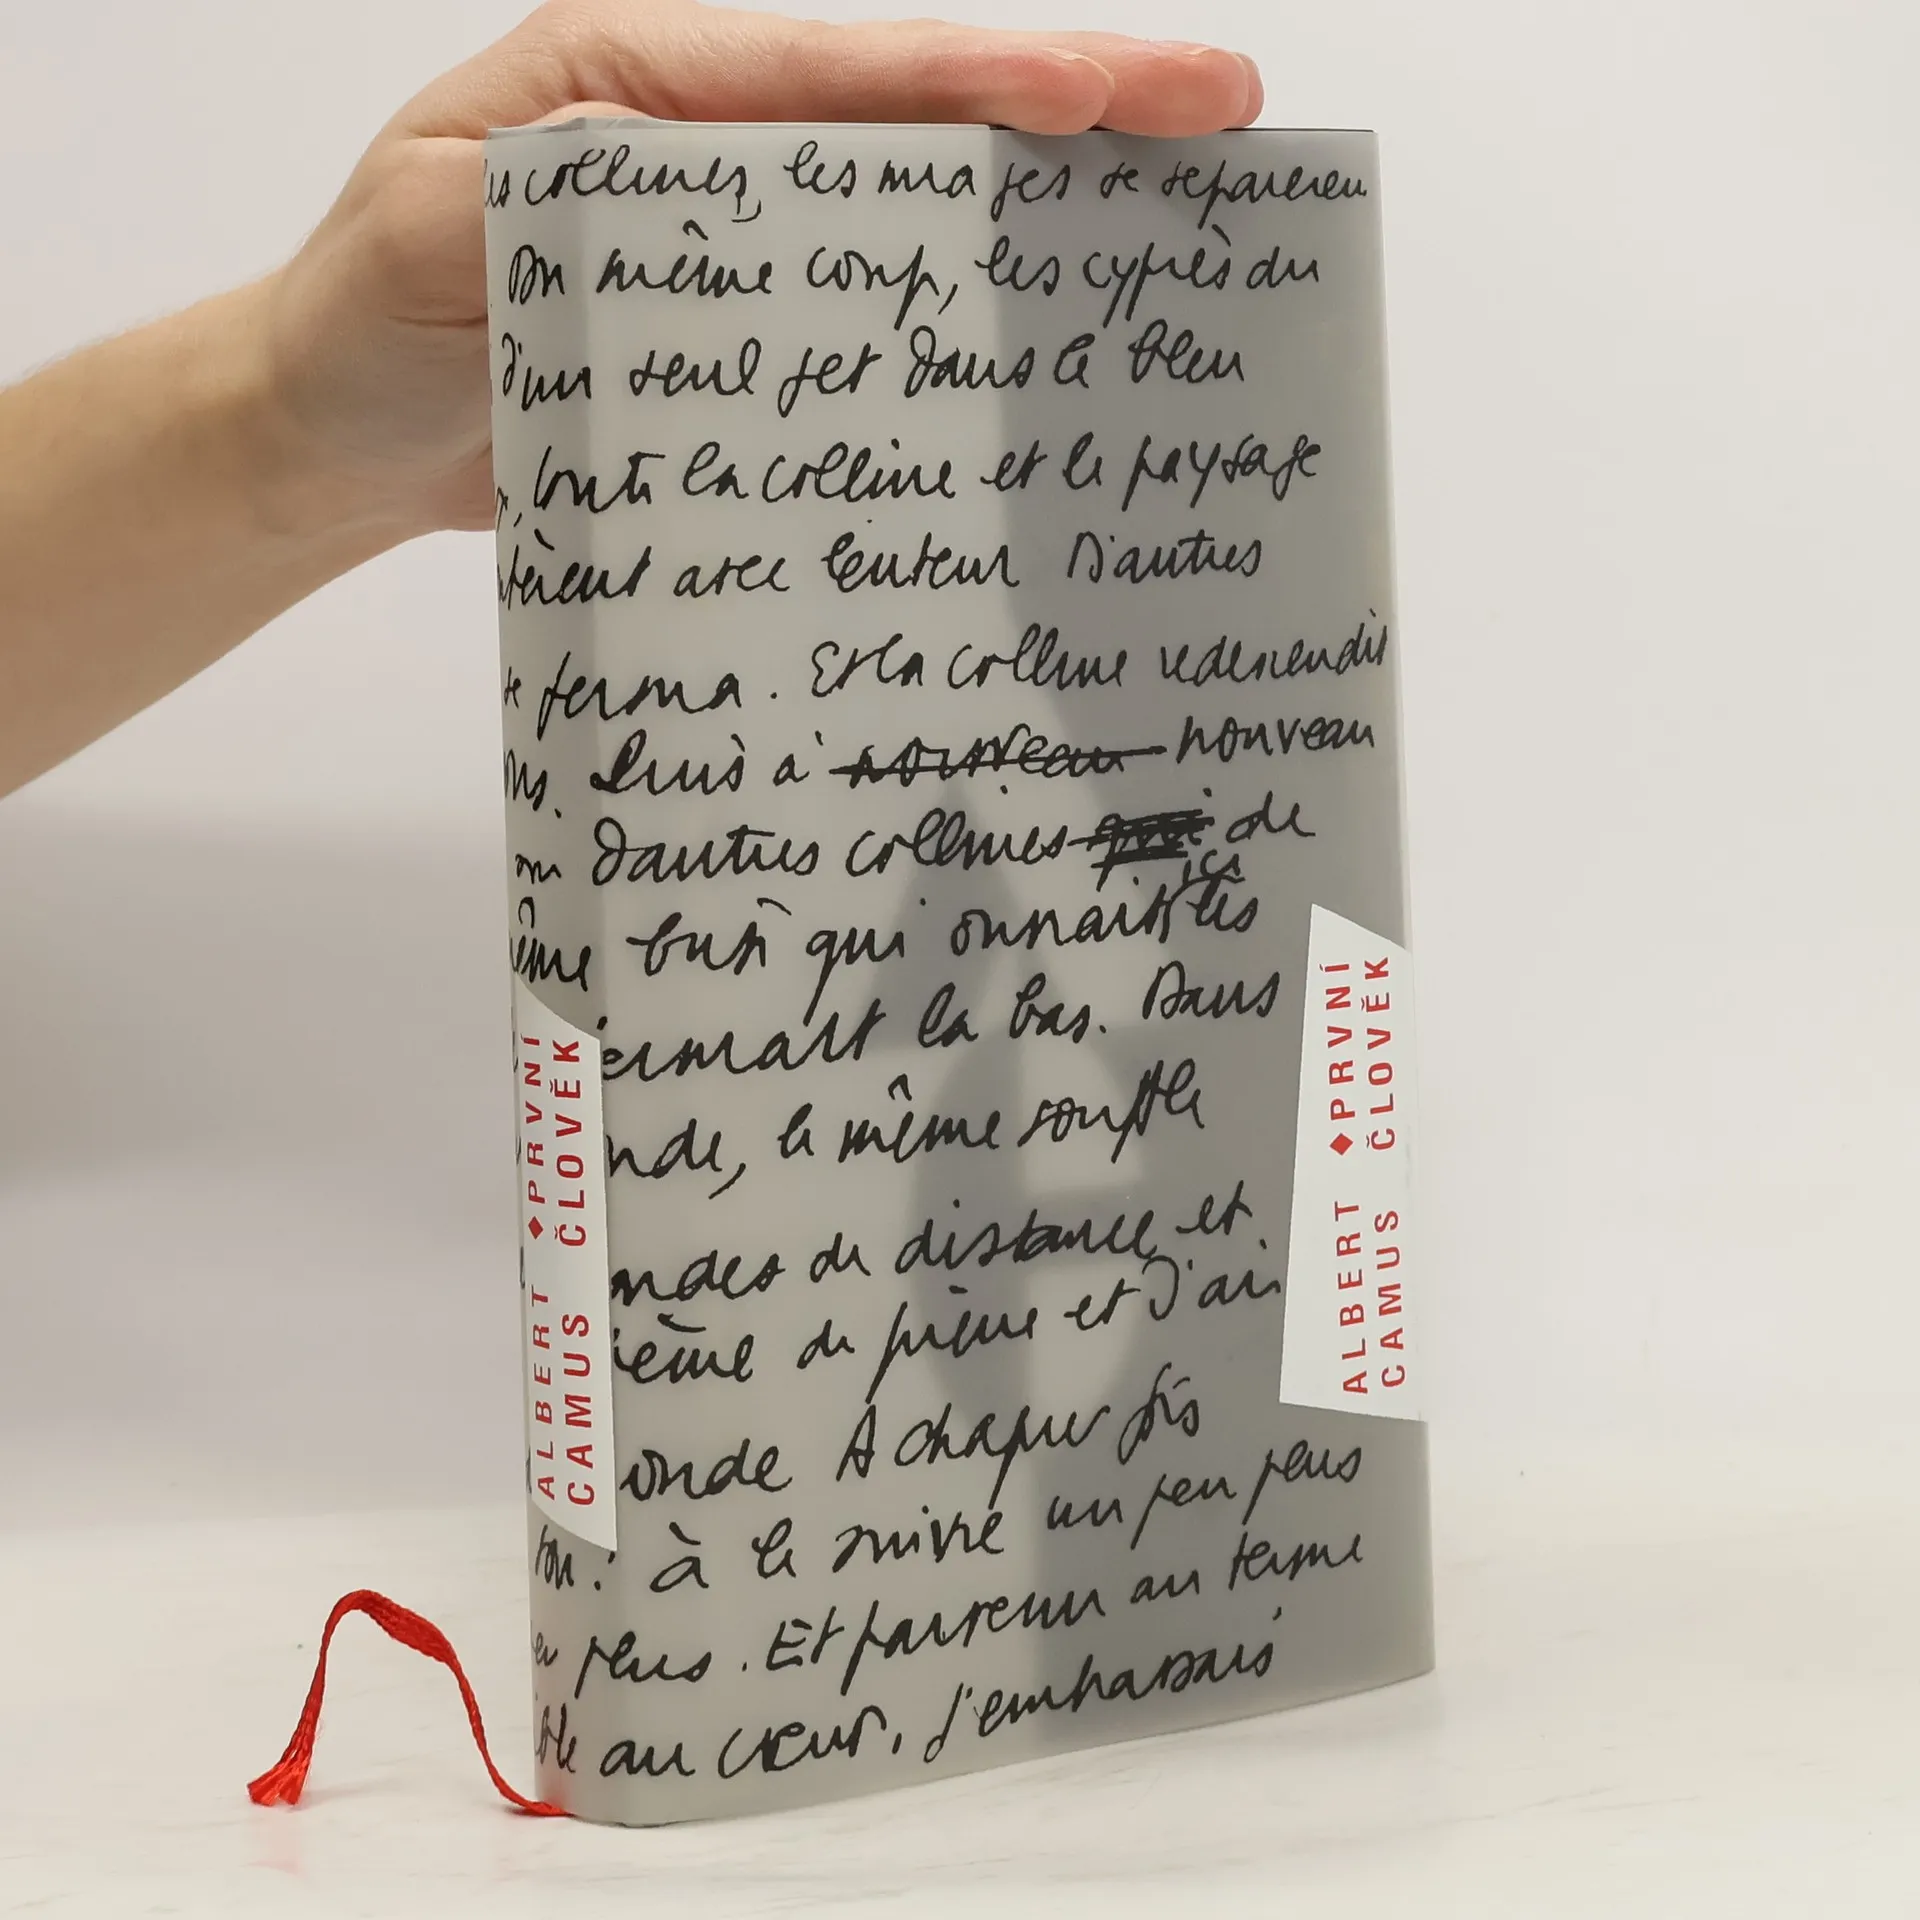 collines, les nuages se separeren
même coup, les cyprès du
d'un seul jet dans le bleu
toute la colline et le paysage
avec lenteur D'autres
se ferma. Et la colline redescendit
Puis à nouveau nouveau
D'autres collines qui de
ici
qui onnait les
la bas. Dans
nde, le même souffle
ondes de distance et
de pierre et d'air
onde A chaque fois
à le suivre un peu plus
plus. Et parvenu au terme
au cœur, j'embrassais
ALBERT ♦PRVNÍ
CAMUS ČLOVĚK
ALBERT ♦PRVNÍ
CAMUS ČLOVĚK